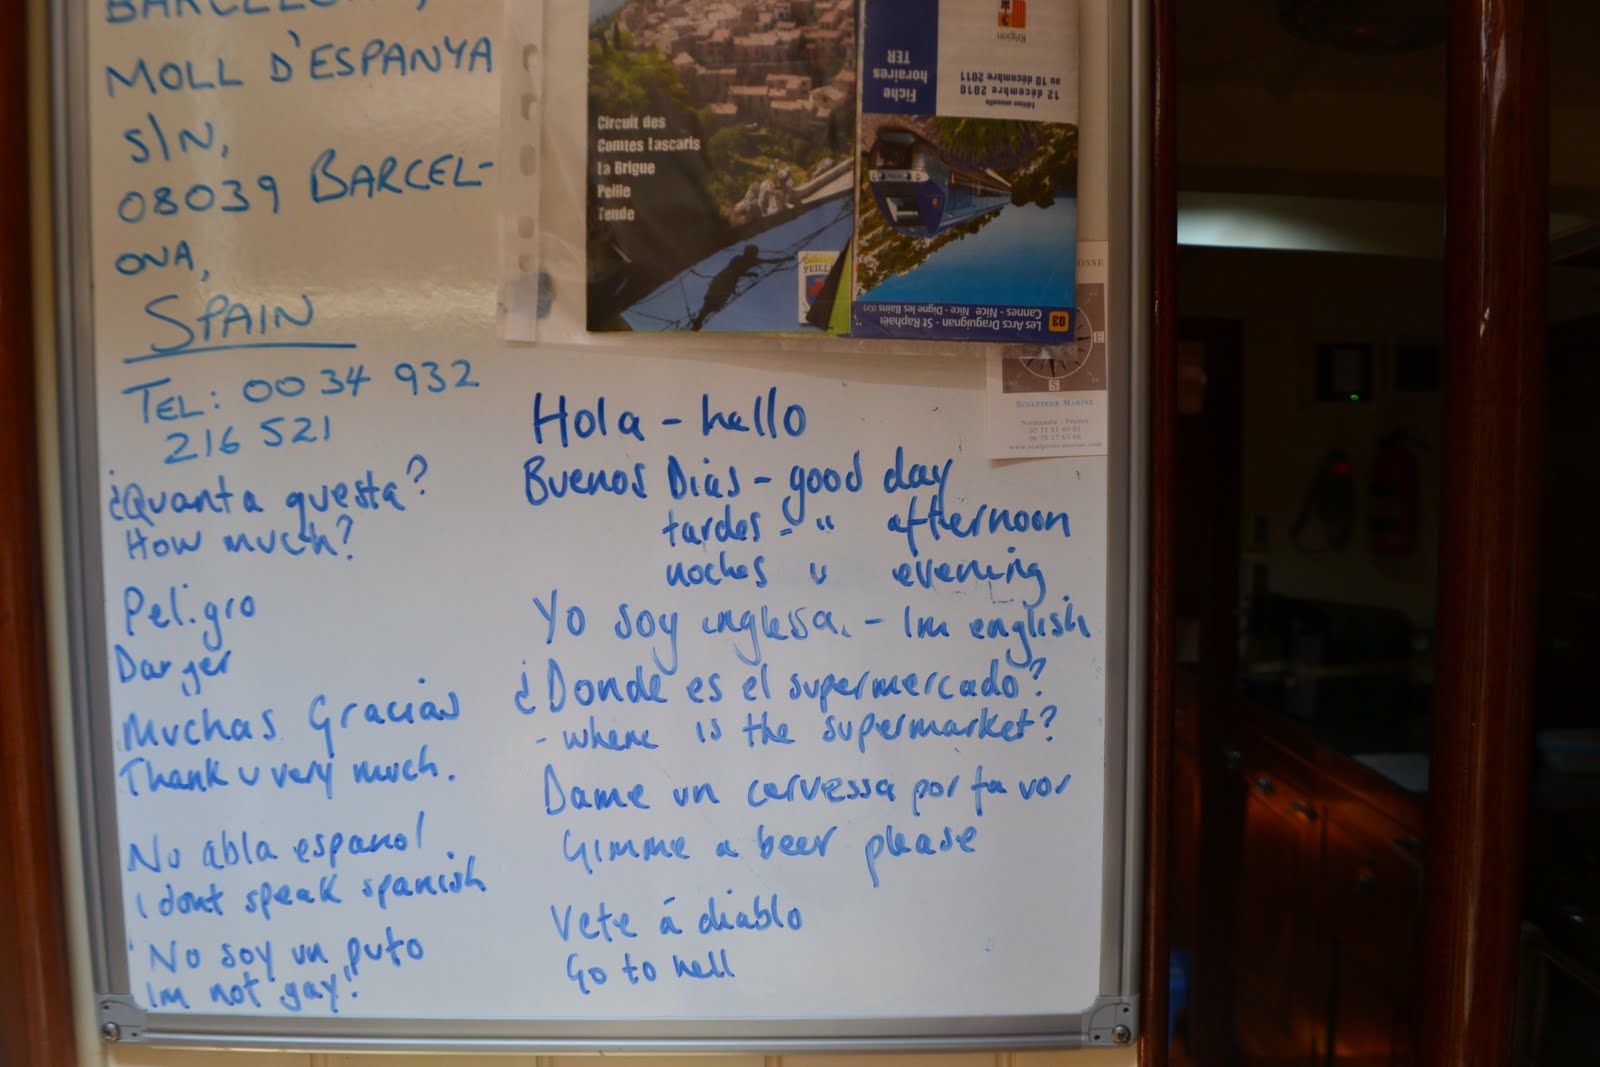 BARCELONA,
MOLL D'ESPANYA
S/N,
08039 BARCEL-
ONA,
SPAIN
TEL: 00 34 932
216 521
¿Quanta questa?
How much?
Peligro
Danger
Muchas Gracias
Thank u very much.
No abla espanol
I dont speak spanish
'No soy un puto
Im not gay!'
Circuit des
Comtes Lascaris
La Brigue
Peille
Tende
PEILLE
Région
Édition annuelle
12 décembre 2010
au 10 décembre 2011
Fiche
horaires
TER
03
Les Arcs Draguignan - St Raphaël
Cannes - Nice Nice - Digne les Bains (Cr)
OSSE
E
S
SCULPTEUR MARINE
Normandie - France
Hola - hello
Buenos Dias - good day
tardes - " afternoon
noches " evening
Yo soy inglesa. - Im english
¿Donde es el supermercado?
- where is the supermarket?
Dame un cervessa por favor
Gimme a beer please
Vete á diablo
Go to hell